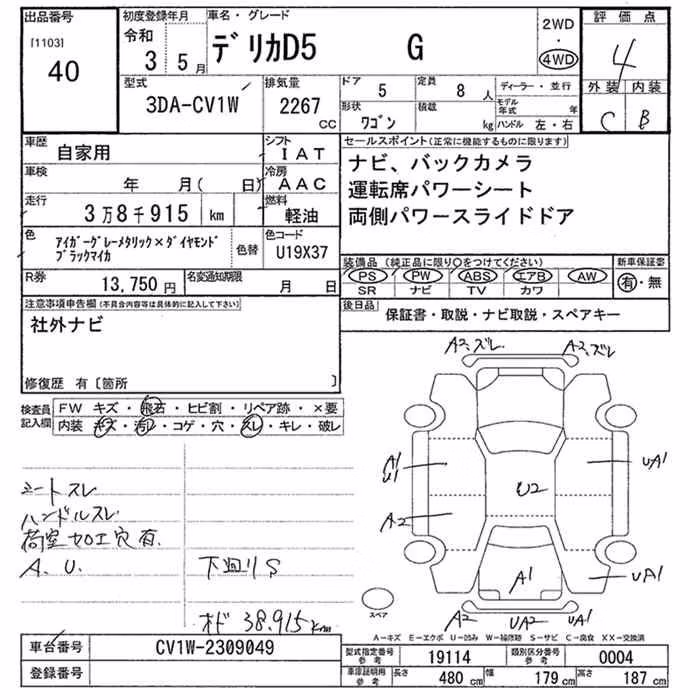 出品番号
[1103]
40
初度登録年月
令和
3 5月
車名・グレード
デリカD5 G
2WD
・
4WD
評価点
4
外装 内装
C B
型式
3DA-CV1W
排気量
2267
CC
ドア
5
形状
ワゴン
定員
8人
積載
kg
ディーラー・並行
モデル年式 年
ハンドル 左・右
車歴
自家用
シフト
IAT
車検
年 月( 日)
冷房
AAC
走行
3万8千915 km
燃料
軽油
色
アイガーグレーメタリック×ダイヤモンド
ブラックマイカ
色替
色コード
U19X37
R券
13,750円
名変通知期限
月 日
セールスポイント(正常に機能するものに限ります)
ナビ、バックカメラ
運転席パワーシート
両側パワースライドドア
装備品(純正品に限り○をつけてください)
PS PW ABS エアB AW
SR ナビ TV カワ
新車保証書
有・無
後日品
保証書・取説・ナビ取説・スペアキー
注意事項申告欄(不具合内容等は具体的に記入して下さい)
社外ナビ
修復歴 有〔箇所 〕
検査員
記入欄
FW キズ・飛石・ヒビ割・リペア跡・×要
内装 キズ・汚レ・コゲ・穴・スレ・キレ・破レ
シートスレ
ハンドルスレ
荷室加工穴有
A、U、
下廻りS
オド 38,915km
A2、ズレ
A2、ズレ
A1
U1
UA1
U2
A2
A1
UA1
A2 UA2 UA1
スペア
A−キズ E−エクボ U−凹み W−補修跡 S−サビ C−腐食 XX−交換済
車台番号
CV1W-2309049
登録番号
型式指定番号
参考
19114
類別区分番号
参考
0004
車庫証明用
参考
長さ 480cm 幅 179cm 高さ 187cm